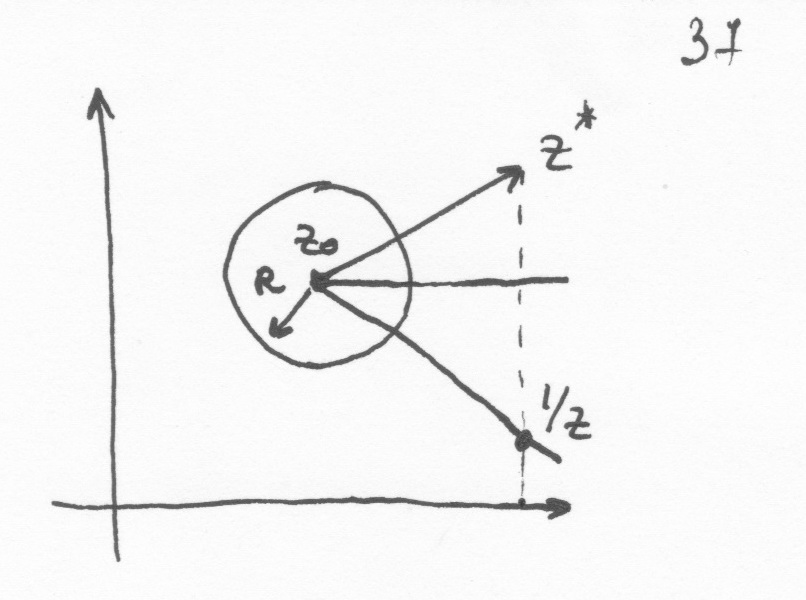 37
z*
z₀
R
1/z